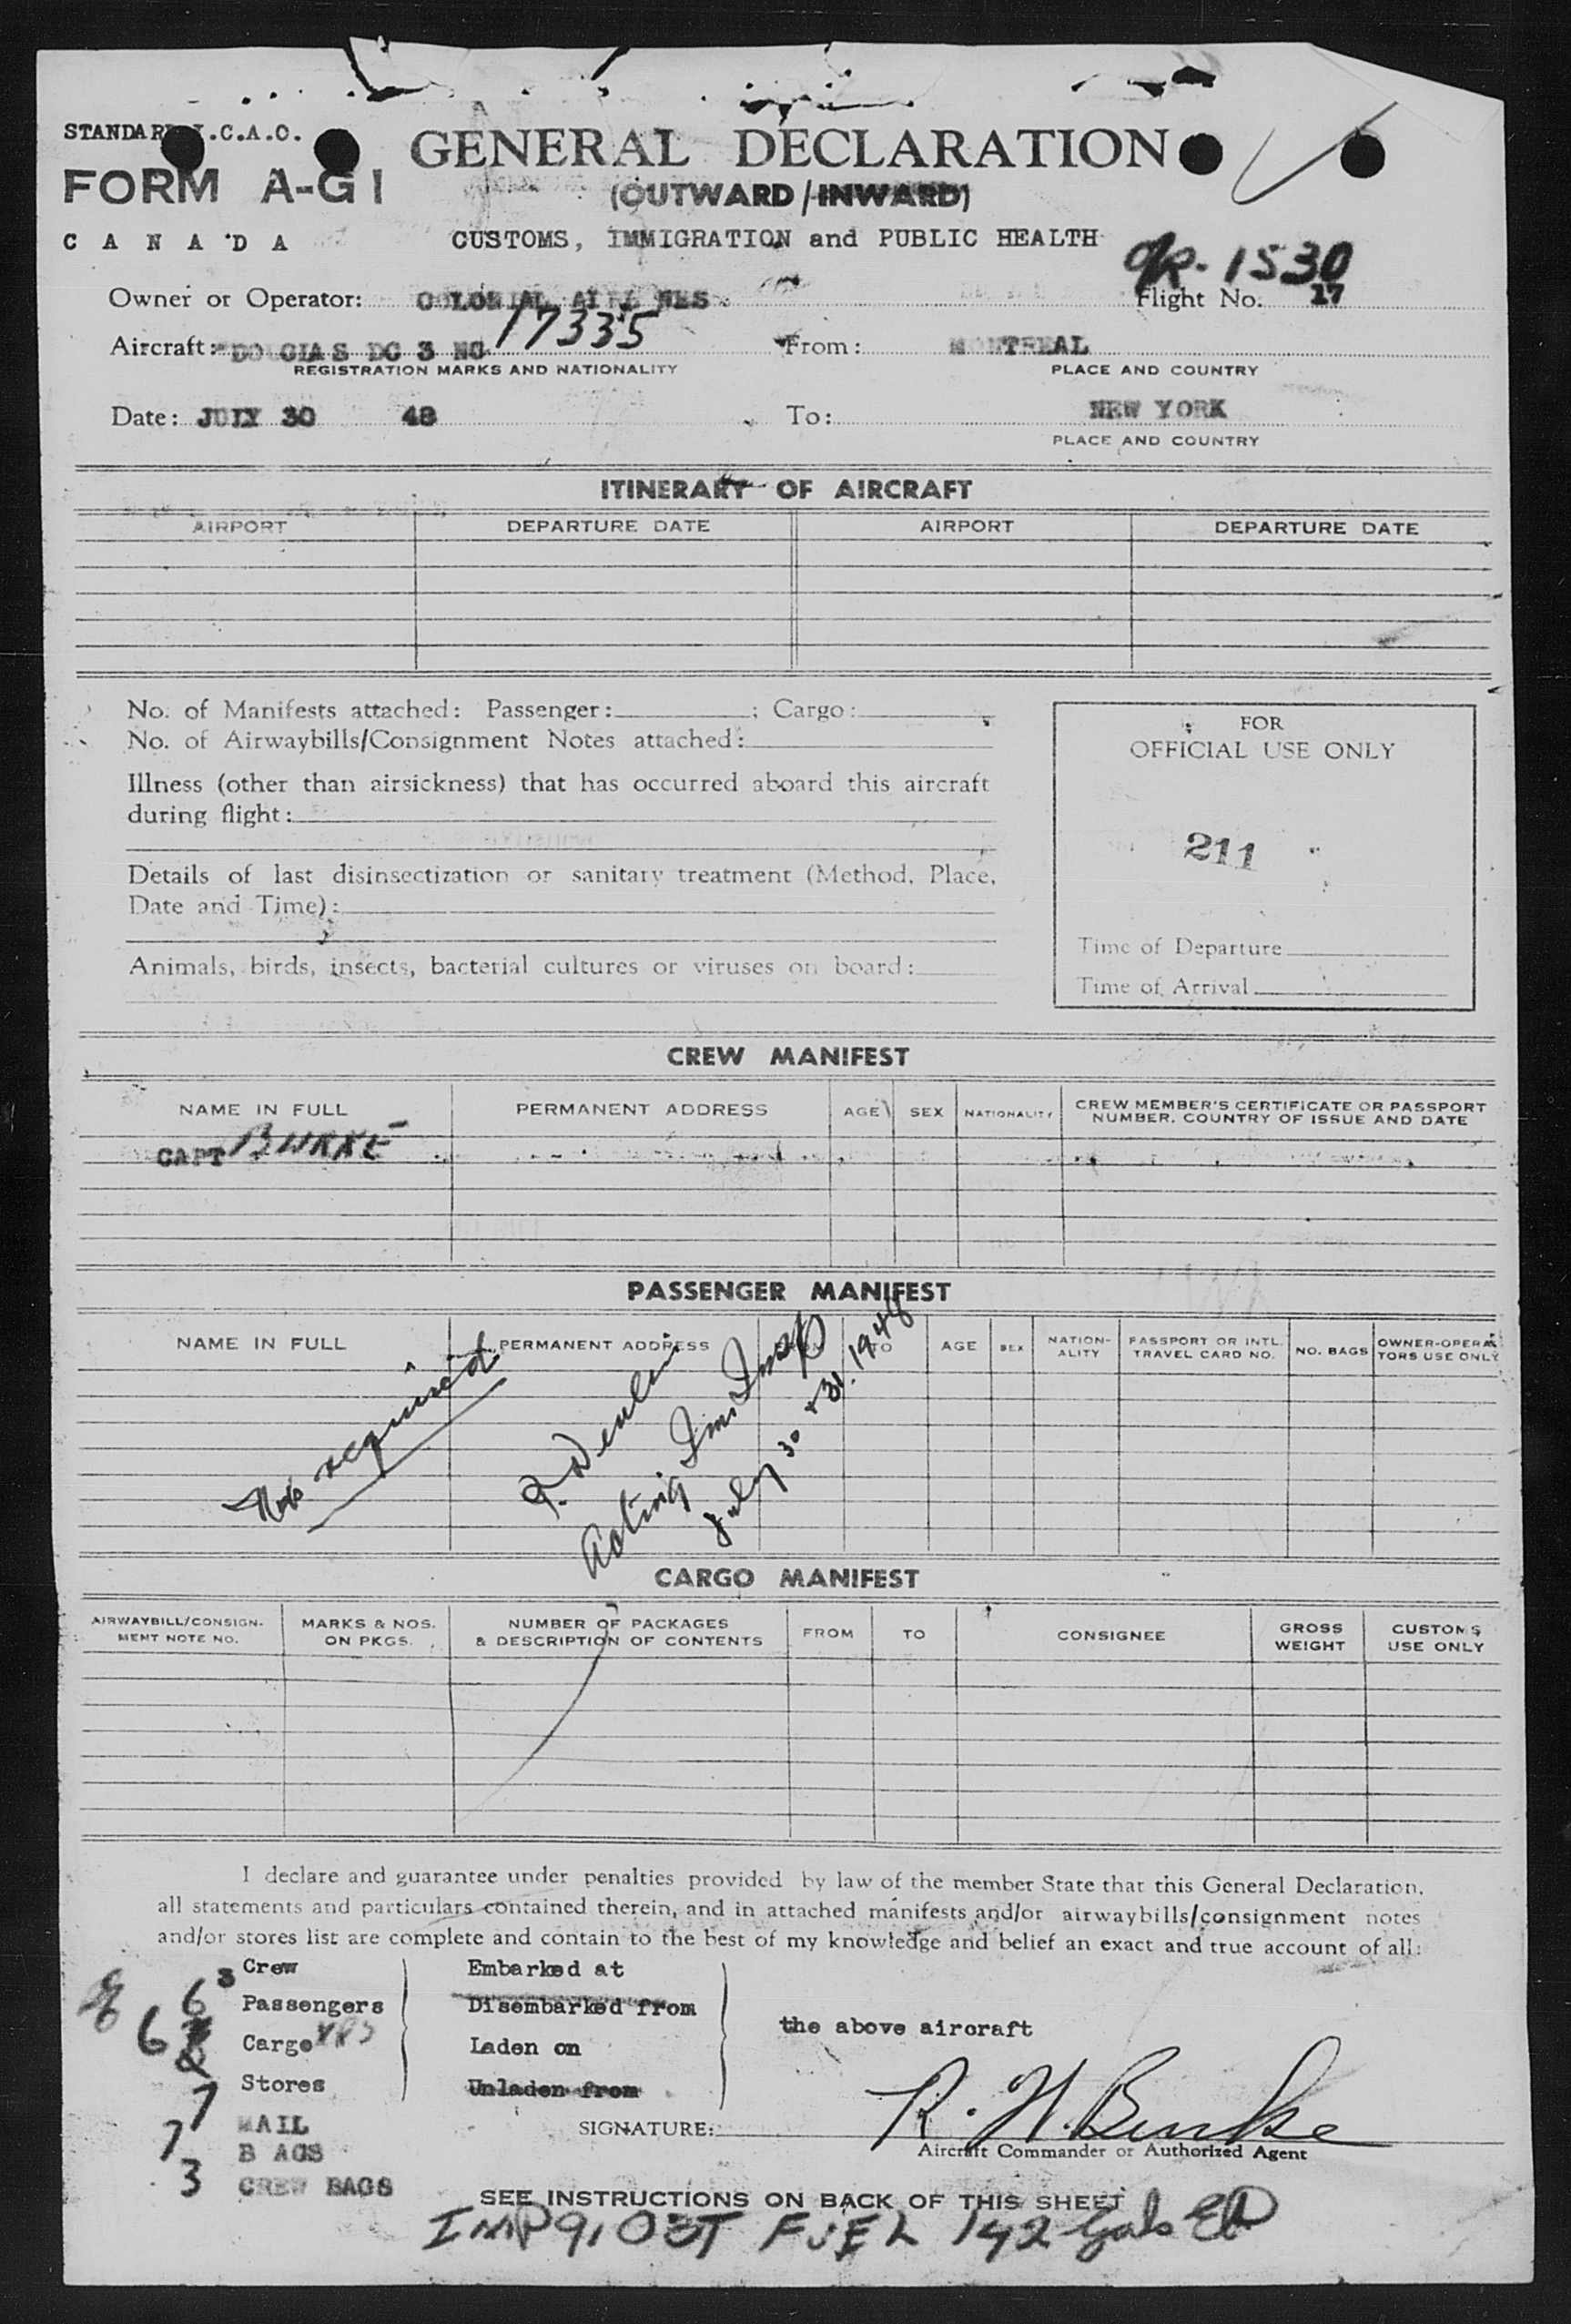 STANDARD I.C.A.O.
FORM A-G1
CANADA
GENERAL DECLARATION
(OUTWARD/INWARD)
CUSTOMS, IMMIGRATION and PUBLIC HEALTH
1530
Owner or Operator: COLONIAL AIRLINES Flight No. 27
Aircraft: DOUGLAS DC 3 NC 17335 From: MONTREAL
REGISTRATION MARKS AND NATIONALITY PLACE AND COUNTRY
Date: JULY 30 48 To: NEW YORK
PLACE AND COUNTRY
ITINERARY OF AIRCRAFT
AIRPORT DEPARTURE DATE AIRPORT DEPARTURE DATE
No. of Manifests attached: Passenger: ; Cargo:
No. of Airwaybills/Consignment Notes attached:
Illness (other than airsickness) that has occurred aboard this aircraft
during flight:
Details of last disinsectization or sanitary treatment (Method, Place,
Date and Time):
Animals, birds, insects, bacterial cultures or viruses on board:
FOR
OFFICIAL USE ONLY
211
Time of Departure
Time of Arrival
CREW MANIFEST
NAME IN FULL PERMANENT ADDRESS AGE SEX NATIONALITY CREW MEMBER'S CERTIFICATE OR PASSPORT
NUMBER, COUNTRY OF ISSUE AND DATE
CAPT BURKE
PASSENGER MANIFEST
NAME IN FULL PERMANENT ADDRESS FROM TO AGE SEX NATION-
ALITY PASSPORT OR INTL.
TRAVEL CARD NO. NO. BAGS OWNER-OPERA-
TORS USE ONLY
Not required
Acting Imm. Insp
July 30 + 31. 1948
CARGO MANIFEST
AIRWAYBILL/CONSIGN-
MENT NOTE NO. MARKS & NOS.
ON PKGS. NUMBER OF PACKAGES
& DESCRIPTION OF CONTENTS FROM TO CONSIGNEE GROSS
WEIGHT CUSTOMS
USE ONLY
I declare and guarantee under penalties provided by law of the member State that this General Declaration,
all statements and particulars contained therein, and in attached manifests and/or airwaybills/consignment notes
and/or stores list are complete and contain to the best of my knowledge and belief an exact and true account of all:
3 Crew Embarked at
6 Passengers Disembarked from
6 Cargo Laden on
Stores Unladen from
the above aircraft
7 MAIL
7 BAGS
3 CREW BAGS
SIGNATURE: R. W. Burke
Aircraft Commander or Authorized Agent
SEE INSTRUCTIONS ON BACK OF THIS SHEET
FUEL 142 Gals